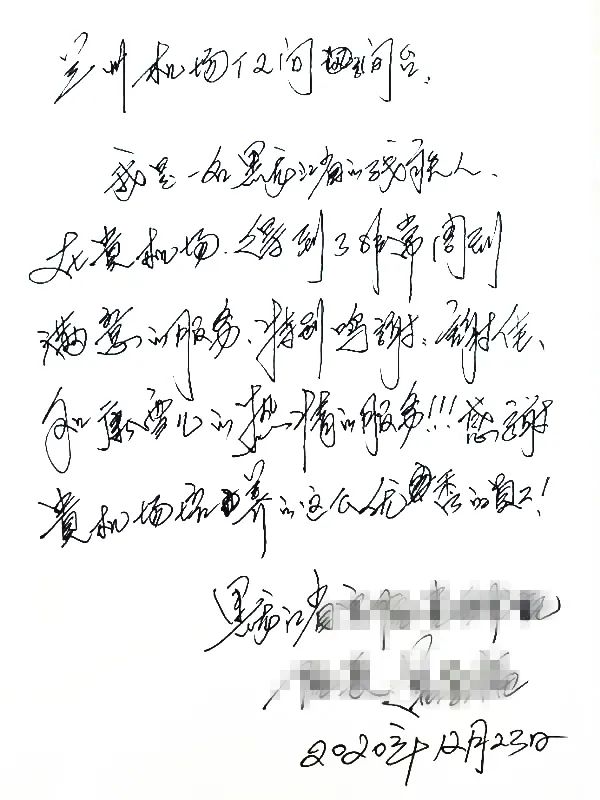 兰州机场仅问问台.
我是一名黑龙江省的残疾人、
在贵机场.得到了非常周到
满意的服务、特别鸣謝：謝佳、
和康雪儿的热情的服务!!!感謝
貴机场培养的这么优秀的員工!
黑龙江省
2020年12月23日